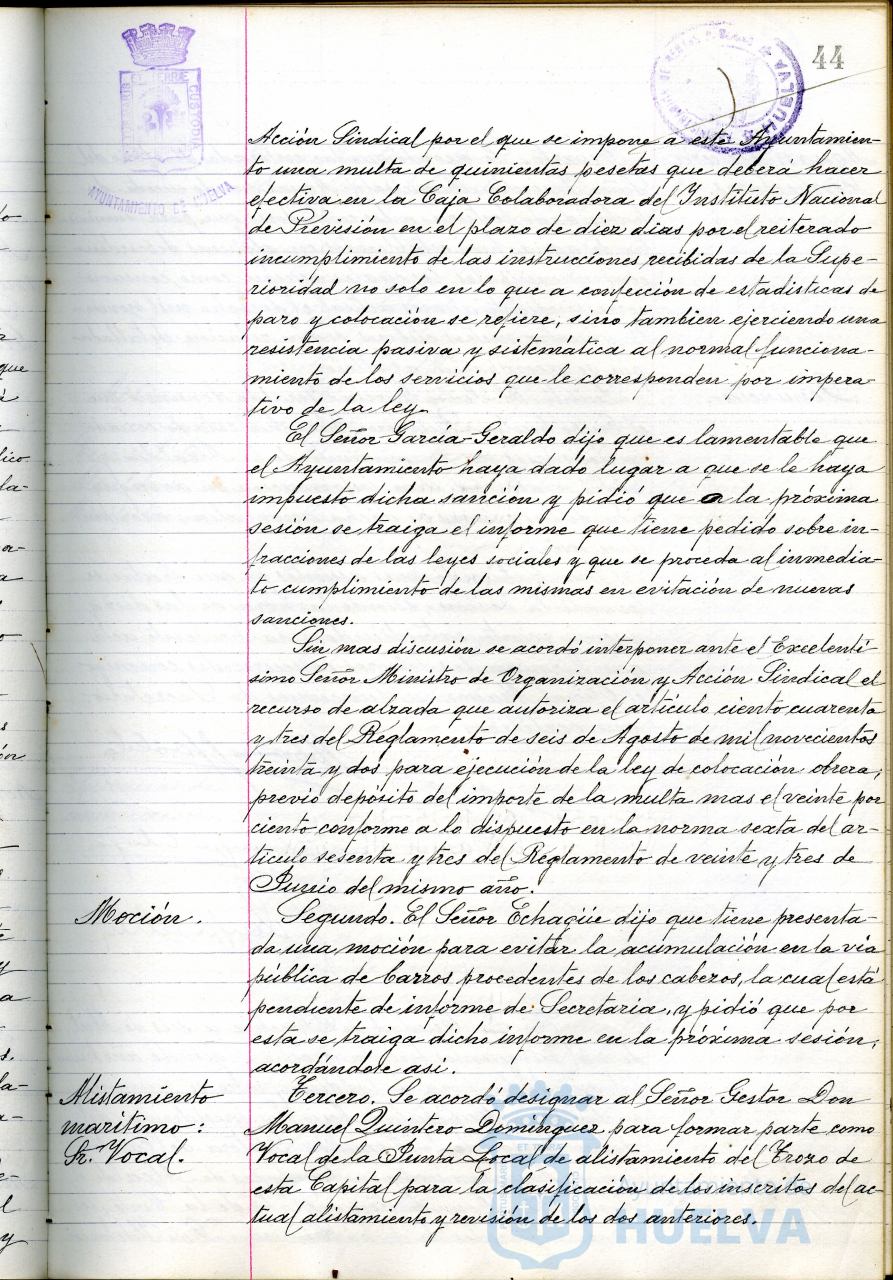 44
AYUNTAMIENTO DE HUELVA
Acción Sindical por el que se impone a este Ayuntamien-
to una multa de quinientas pesetas que deberá hacer
efectiva en la Caja Colaboradora del Instituto Nacional
de Previsión en el plazo de diez dias por el reiterado
incumplimiento de las instrucciones recibidas de la Supe-
rioridad no solo en lo que a confección de estadisticas de
paro y colocación se refiere, sino tambien ejerciendo una
resistencia pasiva y sistemática al normal funciona-
miento de los servicios que le corresponden por impera-
tivo de la ley.
El Señor García-Geraldo dijo que es lamentable que
el Ayuntamiento haya dado lugar a que se le haya
impuesto dicha sanción y pidió que a la próxima
sesión se traiga el informe que tiene pedido sobre in-
fracciones de las leyes sociales y que se proceda al inmedia-
to cumplimiento de las mismas en evitación de nuevas
sanciones.
Sin mas discusión se acordó interponer ante el Excelentí-
simo Señor Ministro de Organización y Acción Sindical el
recurso de alzada que autoriza el artículo ciento cuarenta
y tres del Reglamento de seis de Agosto de mil novecientos
treinta y dos para ejecución de la ley de colocación obrera,
previo depósito del importe de la multa mas el veinte por
ciento conforme a lo dispuesto en la norma sexta del ar-
tículo sesenta y tres del Reglamento de veinte y tres de
Junio del mismo año.
Moción.
Segundo. El Señor Echagüe dijo que tiene presenta-
da una moción para evitar la acumulación en la vía
pública de barros procedentes de los cabezos, la cual está
pendiente de informe de Secretaria, y pidió que por
esta se traiga dicho informe en la próxima sesión,
acordándose asi.
Alistamiento
marítimo:
Sr. Vocal.
Tercero. Se acordó designar al Señor Gestor Don
Manuel Quintero Domínguez para formar parte como
Vocal de la Junta Local de alistamiento del Trozo de
esta Capital para la clasificación de los inscritos del ac-
tual alistamiento y revisión de los dos anteriores.
HUELVA